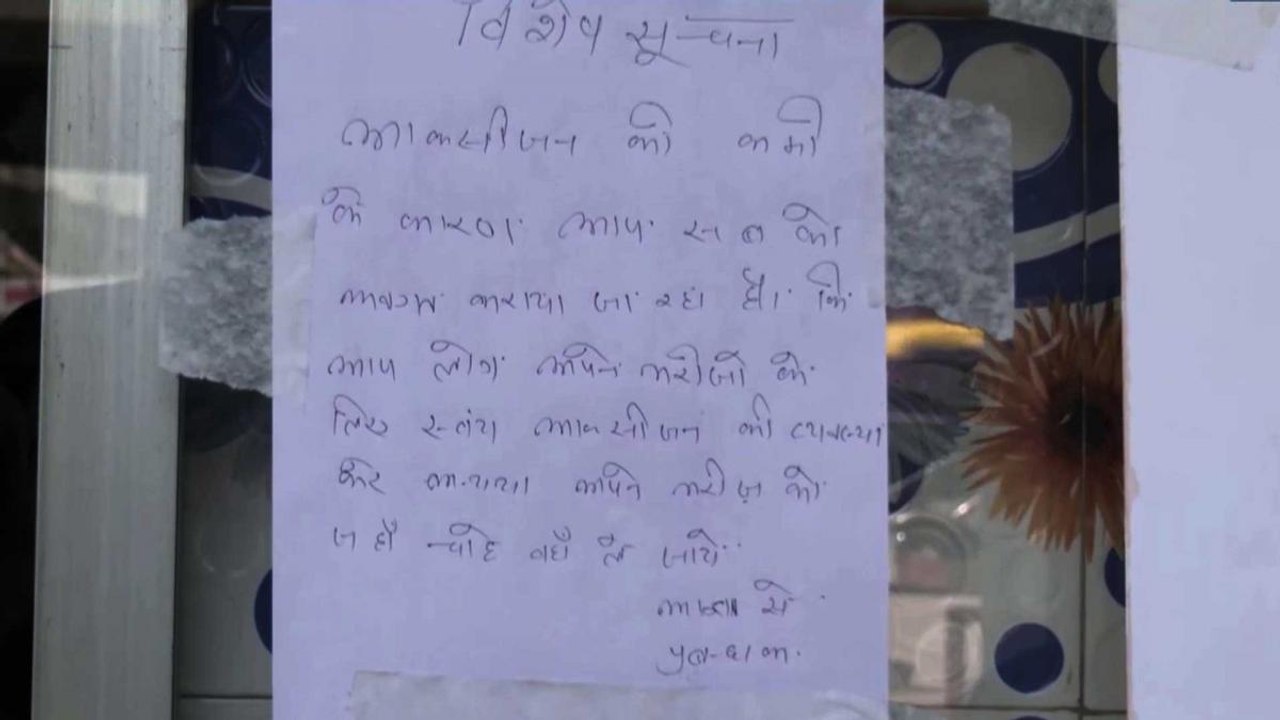 विशेष सूचना
आक्सीजन की कमी
के कारण आप सब को
अवगत कराया जा रहा है। कि
आप लोग अपने मरीजों के
लिए स्वंय आक्सीजन की व्यवस्था
करे अन्यथा अपने मरीज़ को
जहाँ चाहे वहाँ ले जाये
आज्ञा से
प्रबन्धक